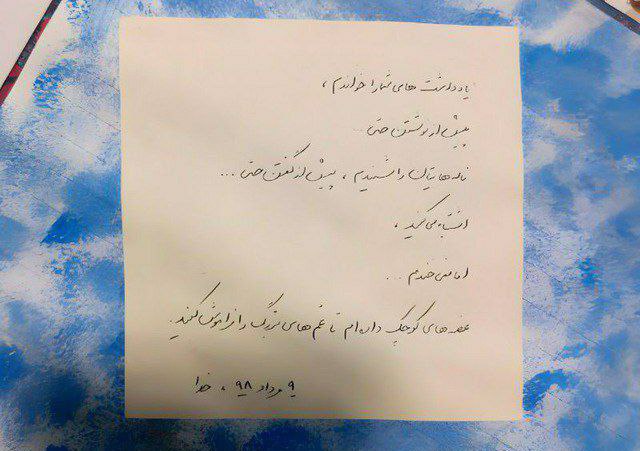 یادداشت های شما را خواندم ،
پیش از نوشتن حتی
ناله هایتان را شنیدم ، پیش از گفتن حتی ...
اشتباه می کنید ،
اما نمی خندم ...
غصه های کوچک داده ام تا غم های بزرگ را فراموش کنید.
۹ مرداد ۹۸ ، خدا